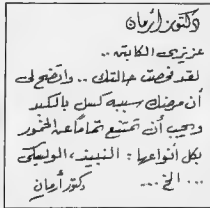 دكتور أرمان
عزيزى الكاتبة ..
لقد فحصت حالتك .. واتضح لى
أن مرضك سببه كسل بالكبد
ويجب أن تمتنع تماما عن الخمور
بكل أنواعها : النبيذ ، الويسكى
... الخ ...
دكتور أرمان